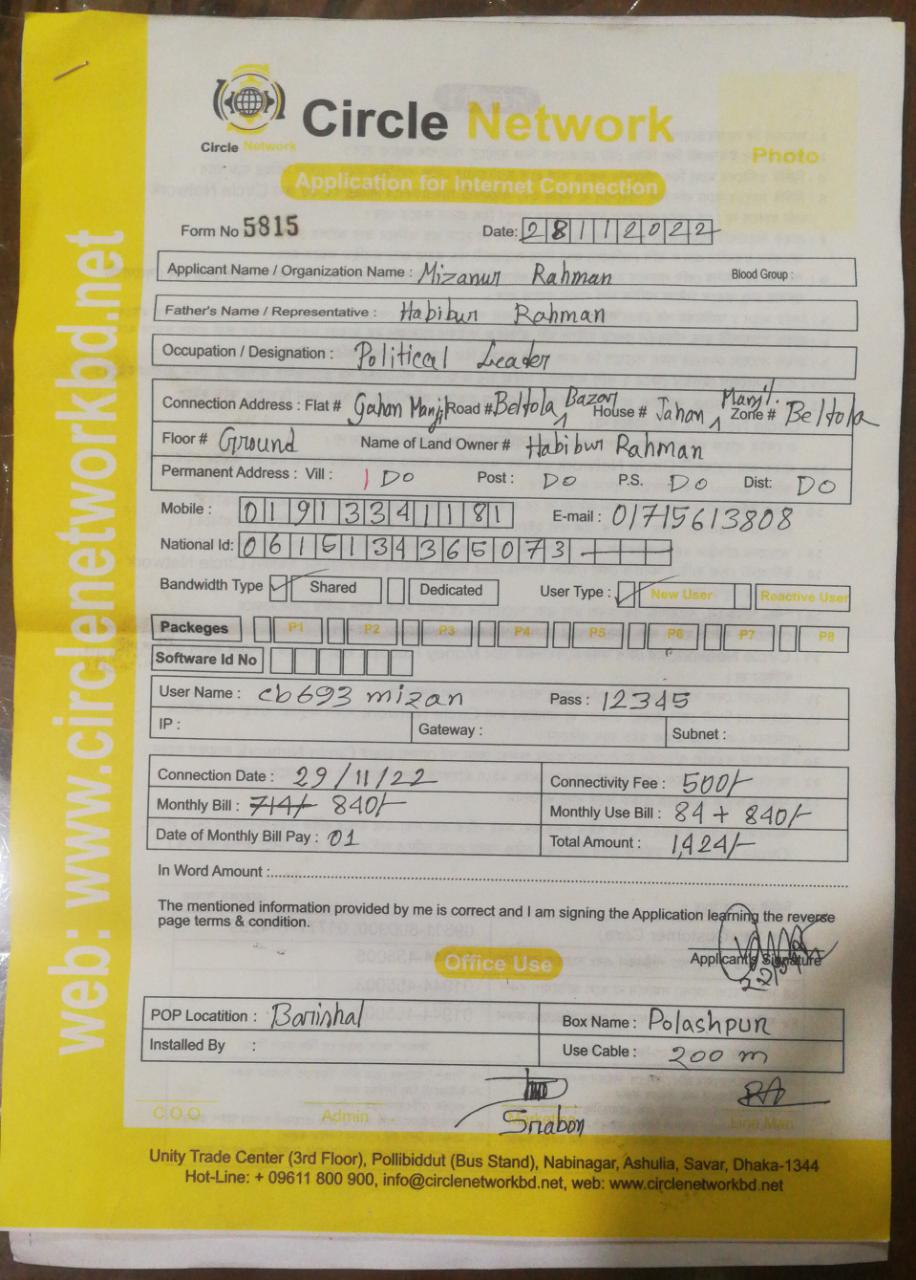 Circle Network
Circle Network
Photo
Application for Internet Connection
web: www.circlenetworkbd.net
Form No 5815
Date: 28112022
Applicant Name / Organization Name : Mizanur Rahman Blood Group :
Father's Name / Representative : Habibur Rahman
Occupation / Designation : Political Leader
Connection Address : Flat # Gahan Manjil Road # Beltola Bazar House # Jahan Manjil. Zone # Beltola
Floor # Ground Name of Land Owner # Habibur Rahman
Permanent Address : Vill : Do Post : Do P.S. Do Dist: Do
Mobile : 01913341181 E-mail : 01715613808
National Id: 0615134365073
Bandwidth Type Shared Dedicated User Type : New User Reactive User
Packeges P1 P2 P3 P4 P5 P6 P7 P8
Software Id No
User Name : cb693 mizan Pass : 12345
IP : Gateway : Subnet :
Connection Date : 29/11/22 Connectivity Fee : 500/-
Monthly Bill : 714/- 840/- Monthly Use Bill : 84 + 840/-
Date of Monthly Bill Pay : 01 Total Amount : 1,424/-
In Word Amount :
The mentioned information provided by me is correct and I am signing the Application learning the reverse
page terms & condition.
Applicant's Signature
Office Use
POP Locatition : Bariishal Box Name : Polashpur
Installed By : Use Cable : 200 m
C.O.O Admin Marketing Line Man
Srabon
Unity Trade Center (3rd Floor), Pollibiddut (Bus Stand), Nabinagar, Ashulia, Savar, Dhaka-1344
Hot-Line: + 09611 800 900, info@circlenetworkbd.net, web: www.circlenetworkbd.net